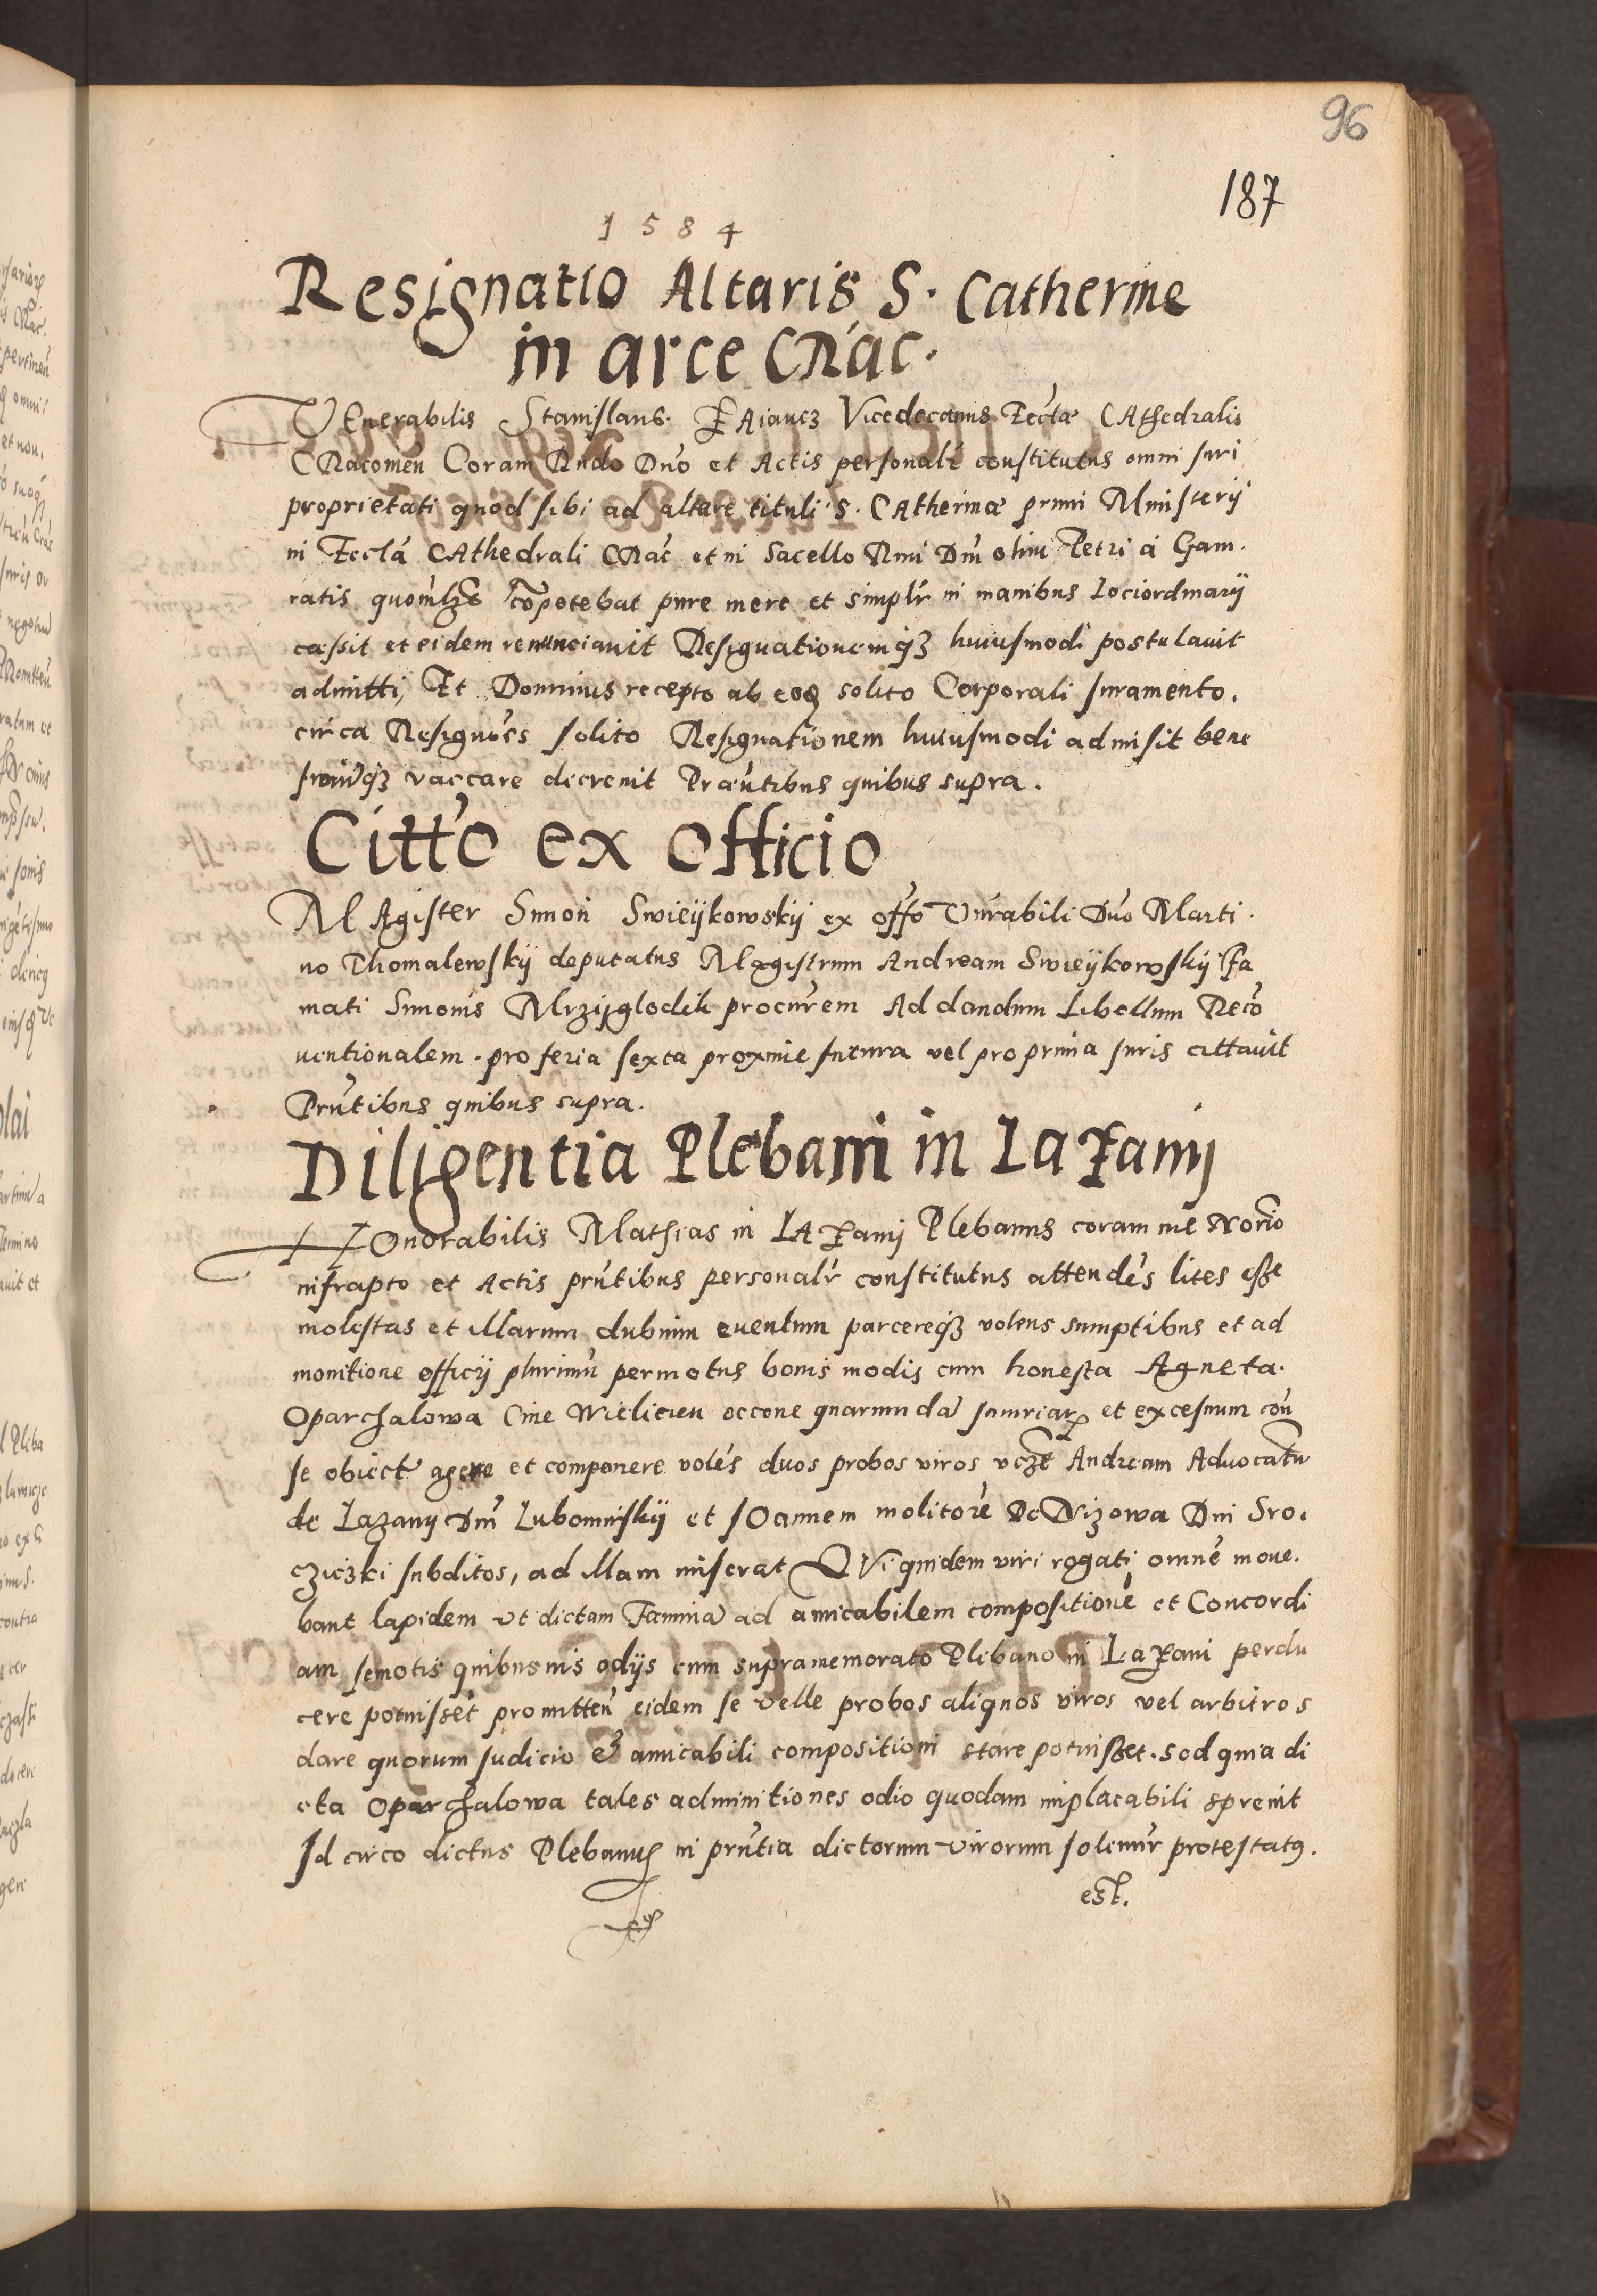 96
187
1584
Resignatio Altaris S. Catherine
in arce CRac.
VEnerabilis Stanislaus Vicedecanus Eccl̃æ CAthedralis
CRacomeñ Coram Rñdo Dño et Actis personalr̃ constitutus omni iuri
proprietati quod sibi ad altare tituli S. CAtherinæ primi Ministerij
in Eccl̃a CAthedrali CRac̃ et in Sacello Rmi Dñi olim Petri à Gam.
ratis quomlꝫt cõpetebat pure mere et simplr̃ in manibus Lociordinarij
cæssit et eidem renunciauit Resignationemqꝫ huiusmodi postulauit
admitti, Et Dominus recepto ab eo solito Corporali Iuramento.
circa Resignões solito Resignationem huiusmodi admisit bene
vaccare decreuit Præñtibus quibus supra.
Citto ex officio
MAgister Simon Swieijkowskij ex offo Vnr̃abili Dño Marti.
no Thomalewskij deputatus Magistrum Andream Swieijkowskij Fa
mati Simonis Mrzijglodek procurẽm Ad dandum Libellum Recõ
uentionalem. pro feria sexta proxime futura vel pro prima iuris cittauit
Prñtibus quibus supra.
Diligentia Plebani in Lazanij
HOnorabilis Mathias in LAzanij Plebanus coram me Norio
infrapto et Actis prñtibus personalr̃ constitutus attendẽs lites esse
molestas et illarum dubium euentum parcereqꝫ volens sumptibus et ad
monitione officij plurimũ permotus bonis modis cum honesta Agneta.
Oparchalowa Ciue Wielicien occone quarumdã iniuriarꝝ et excessuum con̄
se obiect̃ agere et componere volẽs duos probos viros vcꝫt Andream Aduocatũ
de Lazany Dñi Lubomirskij et IOannem molitorẽ De Nizowa Dni Sro.
cziczki subditos, ad illam miserat QVi quidem viri rogati omnẽ moue.
bant lapidem vt dictam Fæminã ad amicabilem compositionẽ et Concordi
am semotis quibusuis odijs cum supramemorato Plebano in Lazani perdu
cere potuissẽt promitteñ eidem se velle probos aliquos viros vel arbitros
dare quorum iudicio et amicabili compositioni stare potuisset. sed quia di
cta Oparchalowa tales adminitiones odio quodam implacabili spreuit
Id circo dictus Plebanus in prñtia dictorum virorum solemr̃ protestatꝰ.
est.